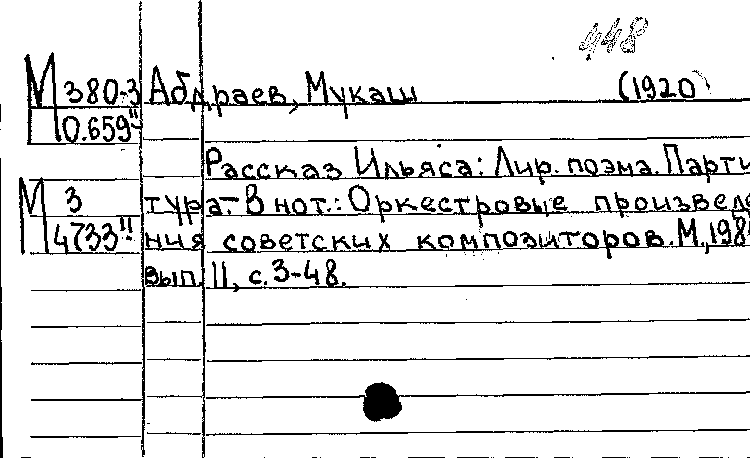 448
М 380-3 Абдраев, Мукаш (1920)
0.659"
Рассказ Ильяса: Лир. поэма. Парти
М 3 тура. В нот.: Оркестровые произведе
4733" ния советских композиторов. М., 198
вып. II, с. 3-48.